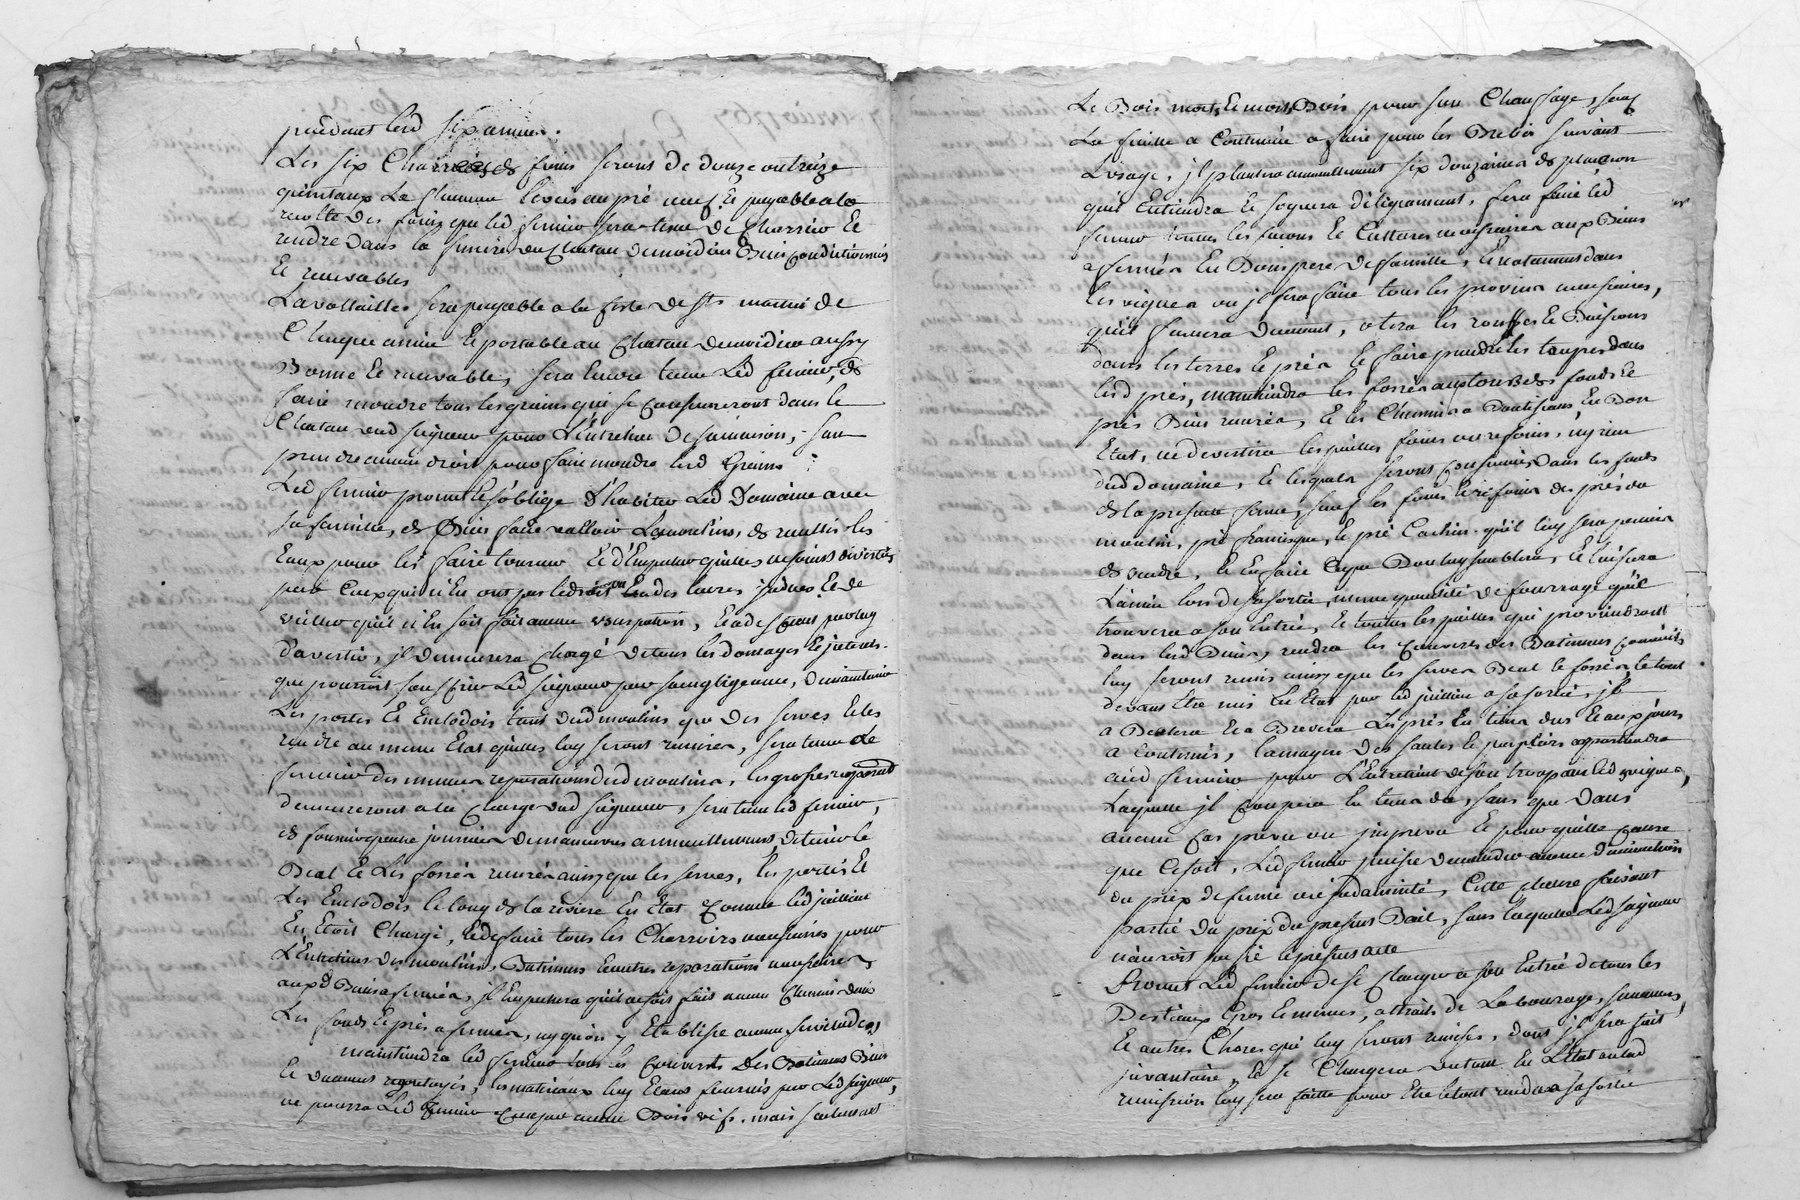 pendant led six années.
Les six Charrées de foins seront de douze ou treize
quintaux La
recolte des foins que led fermier sera tenu de Charrier Et
rendre dans la feniere du Chateau Bien Conditionnés
Et recevables
La vollaille sera payable a la feste de St martin de
Chaque année Et portable au Chateau aussy
Bonne Et recevable, sera Encore tenu Led fermier, de
faire moudre tous les grains qui se Consumeront dans le
Chateau dud seigneur pour L'Entretien de sa maison, sans
prendre aucun droit pour faire moudre lesd Grains
Led fermier promet Et s'oblige D'habiter Led Domaine avec
sa famille, de Bien faire valloir Les moulins, de les
Eaux pour les faire tourner Et d'Empecher qu'elles ne soient diverties
par Ceux qui n'En ont pas led des heures indues Et de
veiller qu'il n'En soit fait aucune usurpation, Et a deffaut par luy
d'avertir, jl demeurera Chargé de tous les domages Et interets
que pourroit souffrir Led seigneur par sa negligeance, de maintenir
Les portes Et Enclodois tant dud moulins que des serves Et les
rendre au meme Etat qu'elles luy seront remises, sera tenu Led
fermier des menues reparations dud moulins, les grosses reparations
demeureront a la Charge dud seigneur, sera tenu led fermier,
de fournir journées de manoeuvres annuellement, de tenir le
Beal Et Les fossés curés ainsy que les serves, les portes Et
Les Enclodois le long de la riviere En Etat Comme led
En Etoit Chargé, Et de faire tous les Charrois necessaires pour
L'Entretien des moulins, Batimens Et autres reparations necessaires
auxd Biens affermés, jl Empechera qu'il ne soit fait aucun Chemin dans
Les fonds Et prés affermés, ny qu'on y Etablisse aucune servitude,
maintiendra led fermier tous les Couverts Des Batimens Bien
Et duement les materiaux luy Etant fournis par Led seigneur,
ne pourra Led fermier Couper aucun Bois vif, mais seulement
Le Bois mort, Et mort Bois pour son Chauffage, sauf
La feuille a Continuer a faire pour les Brebis suivant
L'usage, jl plantera annuellement six douzaines de plançon
qu'il Entiendra Et soignera diligeament, fera faire led
fermier toutes les façons Et Cultures necessaires aux Biens
affermés En Bon pere de famille, Et notamment dans
les vignes ou jl fera faire tous les provins necessaires,
qu'il fumera duement, otera les ronces Et Buissons
dans les terres Et prés Et faire prendre les taupes dans
lesd prés, maintiendra les fossés autour des fonds Et
prés Bien curés, Et les Chemins En Bon
Etat, ne divertira les pailles foins ou refoins, ny rien
dud domaine, Et lesquels seront Consumés dans les fonds
de la presente ferme, sauf les foins Et refoins des prés du
moulin, pré françisque, Et pré Cachin qu'il luy sera permis
de vendre, Et En faire Ce que Bon luy semblera, Et laissera
L'année lors de sa sortie, meme quantité de fourrage qu'il
trouvera a son Entrée, Et toutes les pailles qui proviendront
dans lesd Biens, rendra les Couverts des Batimens Comme ils
luy seront remis ainsy que les serves Beal Et fossés, le tout
devant Etre mis En Etat par led a sa sortie, jl
a Et a Les prés En tems dus Et aux jours
a Coutumés, la des saules Et peupliers appartiendra
aud fermier pour L'Entretien de son troupeau Led seigneur,
Laquelle jl Coupera En tems du, sans que Dans
aucun Cas prevu ou jmprevu Et pour quelle Cause
que Ce soit, Led fermier puisse demander aucune diminution
du prix de ferme ny jndamnité, Cette Clause faisant
partie du prix du present Bail, sans laquelle Led seigneur
n'auroit passé le present acte
Promet Led fermier de se Charger a son Entrée de tous les
Bestiaux Gros Et menus, attraits de Labourage, semences,
Et autres Choses qui luy seront remises, dont jl sera fait
jnvantaire Et se Chargera du tout En L'Etat au bas
remission luy sera faitte pour Etre le tout rendu a sa sortie